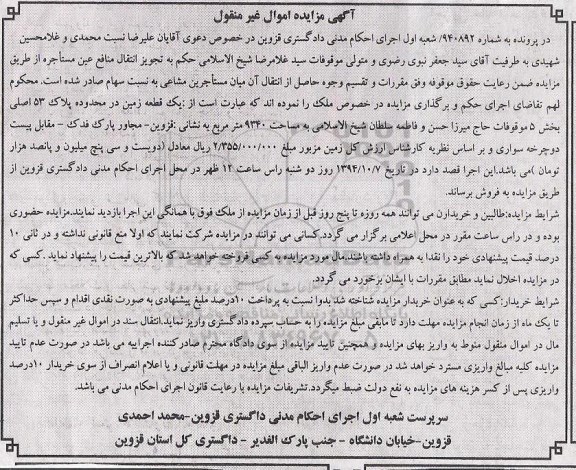 آگهی مزایده اموال غیر منقول
در پرونده به شماره ۹۴۰۸۹۲/ شعبه اول اجرای احکام مدنی دادگستری قزوین در خصوص دعوی آقایان علیرضا نسبت محمدی و غلامحسین
شهیدی به طرفیت آقای سید جعفر نبوی رضوی و متولی موقوفات سید غلامرضا شیخ الاسلامی حکم به تجویز انتقال منافع عین مستأجره از طریق
مزایده ضمن رعایت حقوق موقوفه وفق مقررات و تقسیم وجوه حاصل از انتقال آن میان مستأجرین مشاعی به نسبت سهام صادر شده است. محکوم
لهم تقاضای اجرای حکم و برگذاری مزایده در خصوص ملک را نموده اند که عبارت است از :یک قطعه زمین در محدوده پلاک ۵۳ اصلی
بخش ۵ موقوفات حاج میرزا حسن و فاطمه سلطان شیخ الاسلامی به مساحت ۹۳۴۰ متر مربع به نشانی :قزوین- مجاور پارک فدک - مقابل پیست
دوچرخه سواری و بر اساس نظریه کارشناس ارزش کل زمین مزبور مبلغ ۲/۳۵۵/۰۰۰/۰۰۰ ریال معادل (دویست و سی پنج میلیون و پانصد هزار
تومان )می باشد.این اجرا قصد دارد در تاریخ ۱۳۹۴/۱۰/۷ روز دو شنبه راس ساعت ۱۲ ظهر در محل اجرای احکام مدنی دادگستری قزوین از
طریق مزایده به فروش برساند.
شرایط مزایده:طالبین و خریداران می توانند همه روزه تا پنج روز قبل از زمان مزایده از ملک فوق با همانگی این اجرا بازدید نمایند.مزایده حضوری
بوده و در راس ساعت مقرر در محل اعلامی برگزار می گردد.کسانی می توانند در مزایده شرکت نمایند که اولا منع قانونی نداشته و در ثانی ۱۰
درصد قیمت پیشنهادی خود را نقدا به همراه داشته باشند.مال مورد مزایده به کسی فروخته خواهد شد که بالاترین قیمت را پیشنهاد نماید .کسی که
در مزایده اخلال نماید مطابق مقررات با ایشان برخورد می گردد.
شرایط خریدار:کسی که به عنوان خریدار مزایده شناخته شد بدوا نسبت به پرداخت ۱۰درصد ملبغ پیشنهادی به صورت نقدی اقدام و سپس حداکثر
تا یک ماه از زمان انجام مزایده مهلت دارد تا مابقی مبلغ مزایده را به حساب سپرده دادگستری واریز نماید.انتقال سند در اموال غیر منقول و یا تسلیم
مال در اموال منقول منوط به واریز بهای مزایده و همچنین تایید مزایده از سوی دادگاه محترم صادرکننده اجراییه می باشد در صورت عدم تایید
مزایده کلیه مبالغ واریزی مسترد خواهد شد در صورت عدم واریز الباقی مبلغ مزایده در مهلت قانونی و یا اعلام انصراف از سوی خریدار ۱۰درصد
واریزی پس از کسر هزینه های مزایده به نفع دولت ضبط میگردد.تشریفات مزایده با رعایت قانون اجرای احکام مدنی می باشد.
سرپرست شعبه اول اجرای احکام مدنی داگستری قزوین-محمد احمدی
قزوین-خیابان دانشگاه - جنب پارک الغدیر - داگستری کل استان قزوین